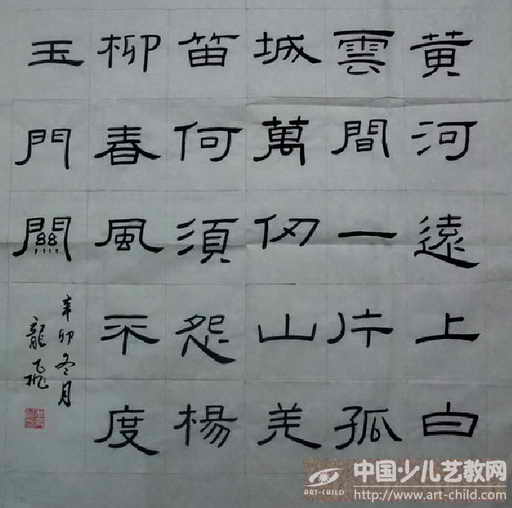 黄河遠上白
雲間一片孤
城萬仞山羌
笛何須怨楊
柳春風不度
玉門關
辛卯冬月
龍飞
中国少儿艺教网
ART-CHILD
http://www.art-child.com